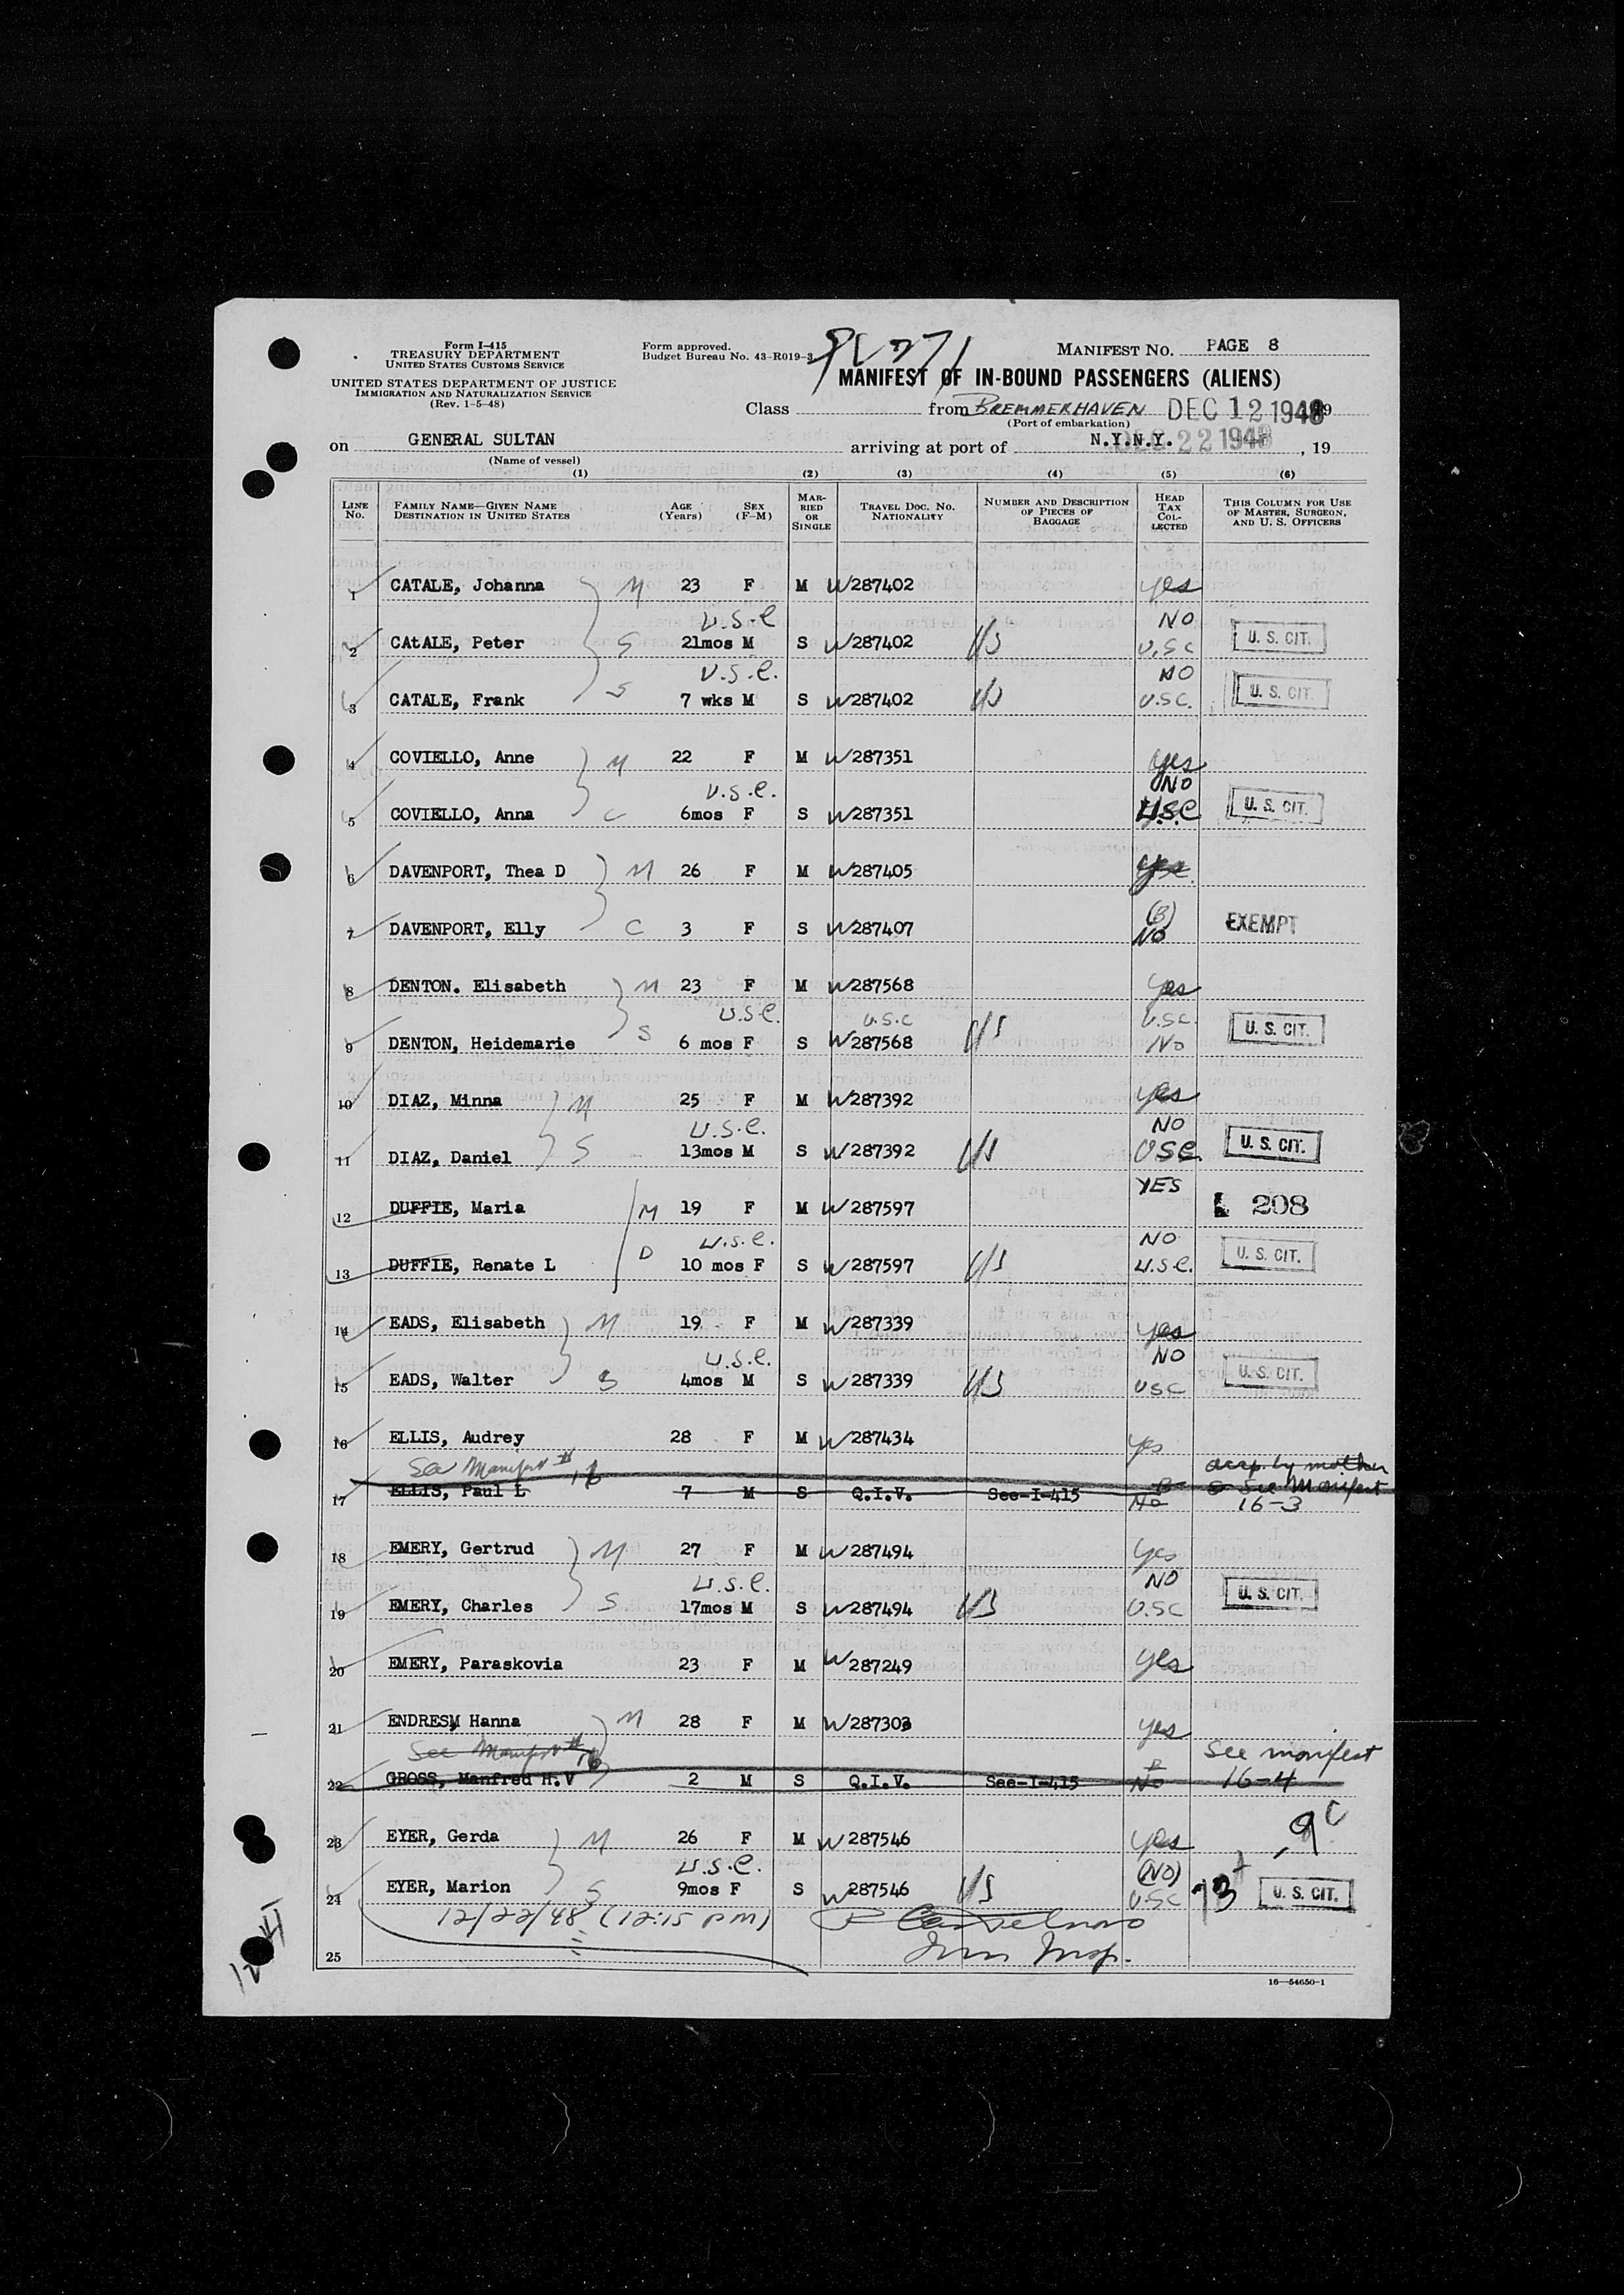 Form I-415
TREASURY DEPARTMENT
UNITED STATES CUSTOMS SERVICE
UNITED STATES DEPARTMENT OF JUSTICE
IMMIGRATION AND NATURALIZATION SERVICE
(Rev. 1-5-48)
Form approved.
Budget Bureau No. 43-R019-3
MANIFEST NO. PAGE 8
MANIFEST OF IN-BOUND PASSENGERS (ALIENS)
Class from BREMMERHAVEN DEC 12 1948
(Port of embarkation)
on GENERAL SULTAN arriving at port of N.Y.N.Y. DEC 22 1948, 19
(Name of vessel)
(1) (2) (3) (4) (5) (6)
LINE NO. FAMILY NAME—GIVEN NAME DESTINATION IN UNITED STATES AGE (Years) SEX (F-M) MARRIED OR SINGLE TRAVEL DOC. NO. NATIONALITY NUMBER AND DESCRIPTION OF PIECES OF BAGGAGE HEAD TAX COLLECTED THIS COLUMN FOR USE OF MASTER, SURGEON, AND U. S. OFFICERS
1 CATALE, Johanna M 23 F M W287402 yes
U.S.C NO
2 CAtALE, Peter S 21mos M S W287402 U.SC U. S. CIT.
U.S.C. NO
3 CATALE, Frank S 7 wks M S W287402 U.SC. U. S. CIT.
4 COVIELLO, Anne M 22 F M W287351 yes
U.S.C. NO
5 COVIELLO, Anna C 6mos F S W287351 U.S.C U. S. CIT.
6 DAVENPORT, Thea D M 26 F M W287405 yes
(B)
7 DAVENPORT, Elly C 3 F S W287407 NO EXEMPT
8 DENTON. Elisabeth M 23 F M W287568 yes
U.S.C. U.S.C U.SC.
9 DENTON, Heidemarie S 6 mos F S W287568 No U. S. CIT.
10 DIAZ, Minna M 25 F M W287392 yes
U.S.C. NO
11 DIAZ, Daniel S 13mos M S W287392 USC. U. S. CIT.
YES
12 DUFFIE, Maria M 19 F M W287597 208
U.S.C. NO
13 DUFFIE, Renate L D 10 mos F S W287597 U.S.C. U. S. CIT.
14 EADS, Elisabeth M 19 F M W287339 yes
U.S.C. NO
15 EADS, Walter S 4mos M S W287339 USC U. S. CIT.
16 ELLIS, Audrey 28 F M W287434 yes
See Manifest # 16 accp. by mother
17 ELLIS, Paul L 7 M S Q.I.V. See-I-415 B No See Manifest
16-3
18 EMERY, Gertrud M 27 F M W287494 yes
U.S.C. NO
19 EMERY, Charles S 17mos M S W287494 U.SC U. S. CIT.
20 EMERY, Paraskovia 23 F M W287249 yes
21 ENDRESM Hanna M 28 F M W287303 yes
See Manifest # 16 See manifest
22 GROSS, Manfred H.V 2 M S Q.I.V. See-I-415 No 16-4
23 EYER, Gerda M 26 F M W287546 yes
U.S.C. (NO)
24 EYER, Marion S 9mos F S W287546 U.SC U. S. CIT.
12/22/48 (12:15 PM)
Imm Insp.
25
16—54650-1